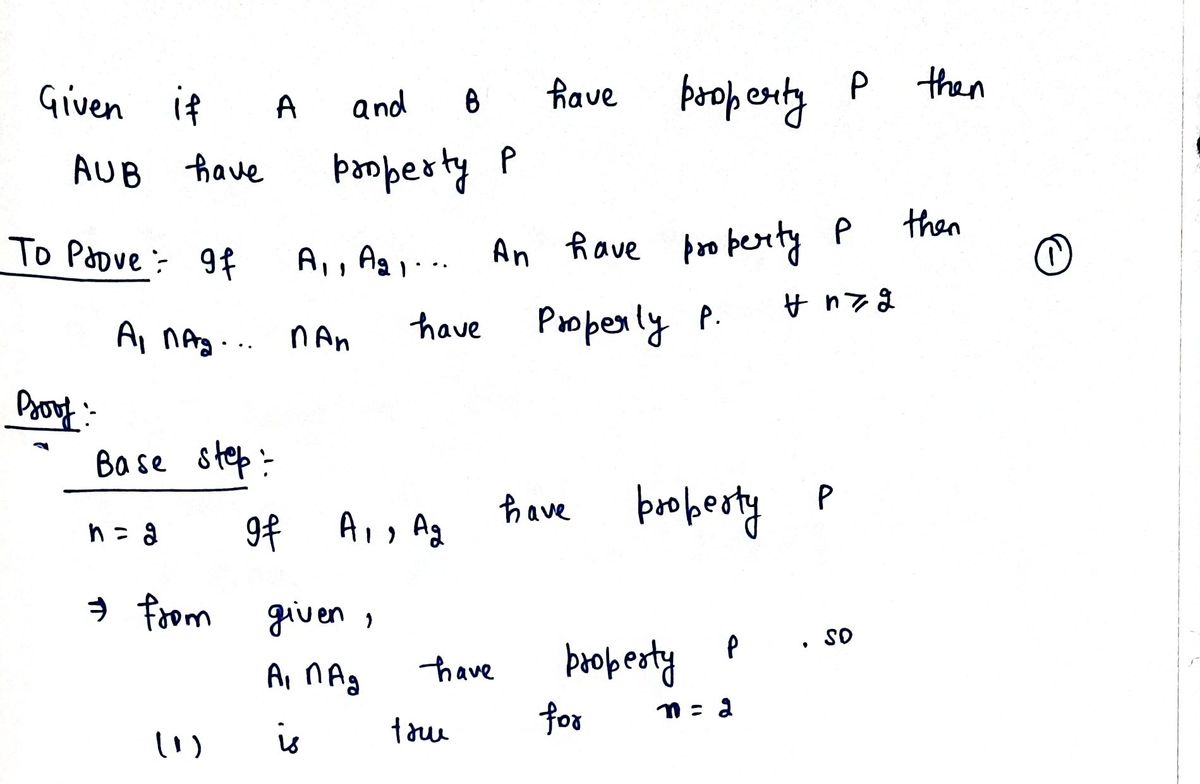 Given if A and B have property P then
A∪B have property P
To Prove :- If A₁, A₂, ... An have property P then ①
A₁ ∩A₂ ... ∩An have Property P. ∀ n ≥ 2
Proof :-
Base step :-
n = 2 If A₁, A₂ have property P
⇒ from given,
A₁ ∩A₂ have property P . so
(1) is true for n = 2